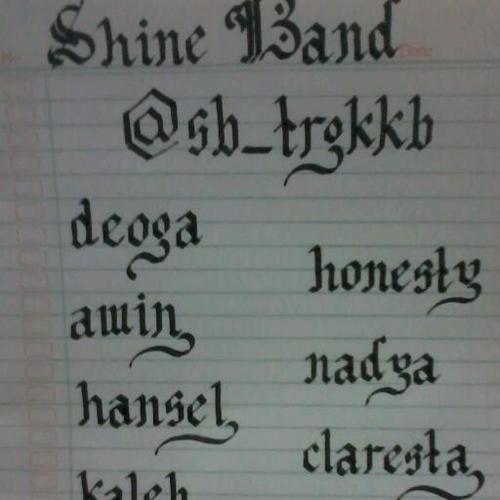 Shine Band
@sb_trgkkb
deoga
honesty
amin
nadya
hansel
claresta
kaleb